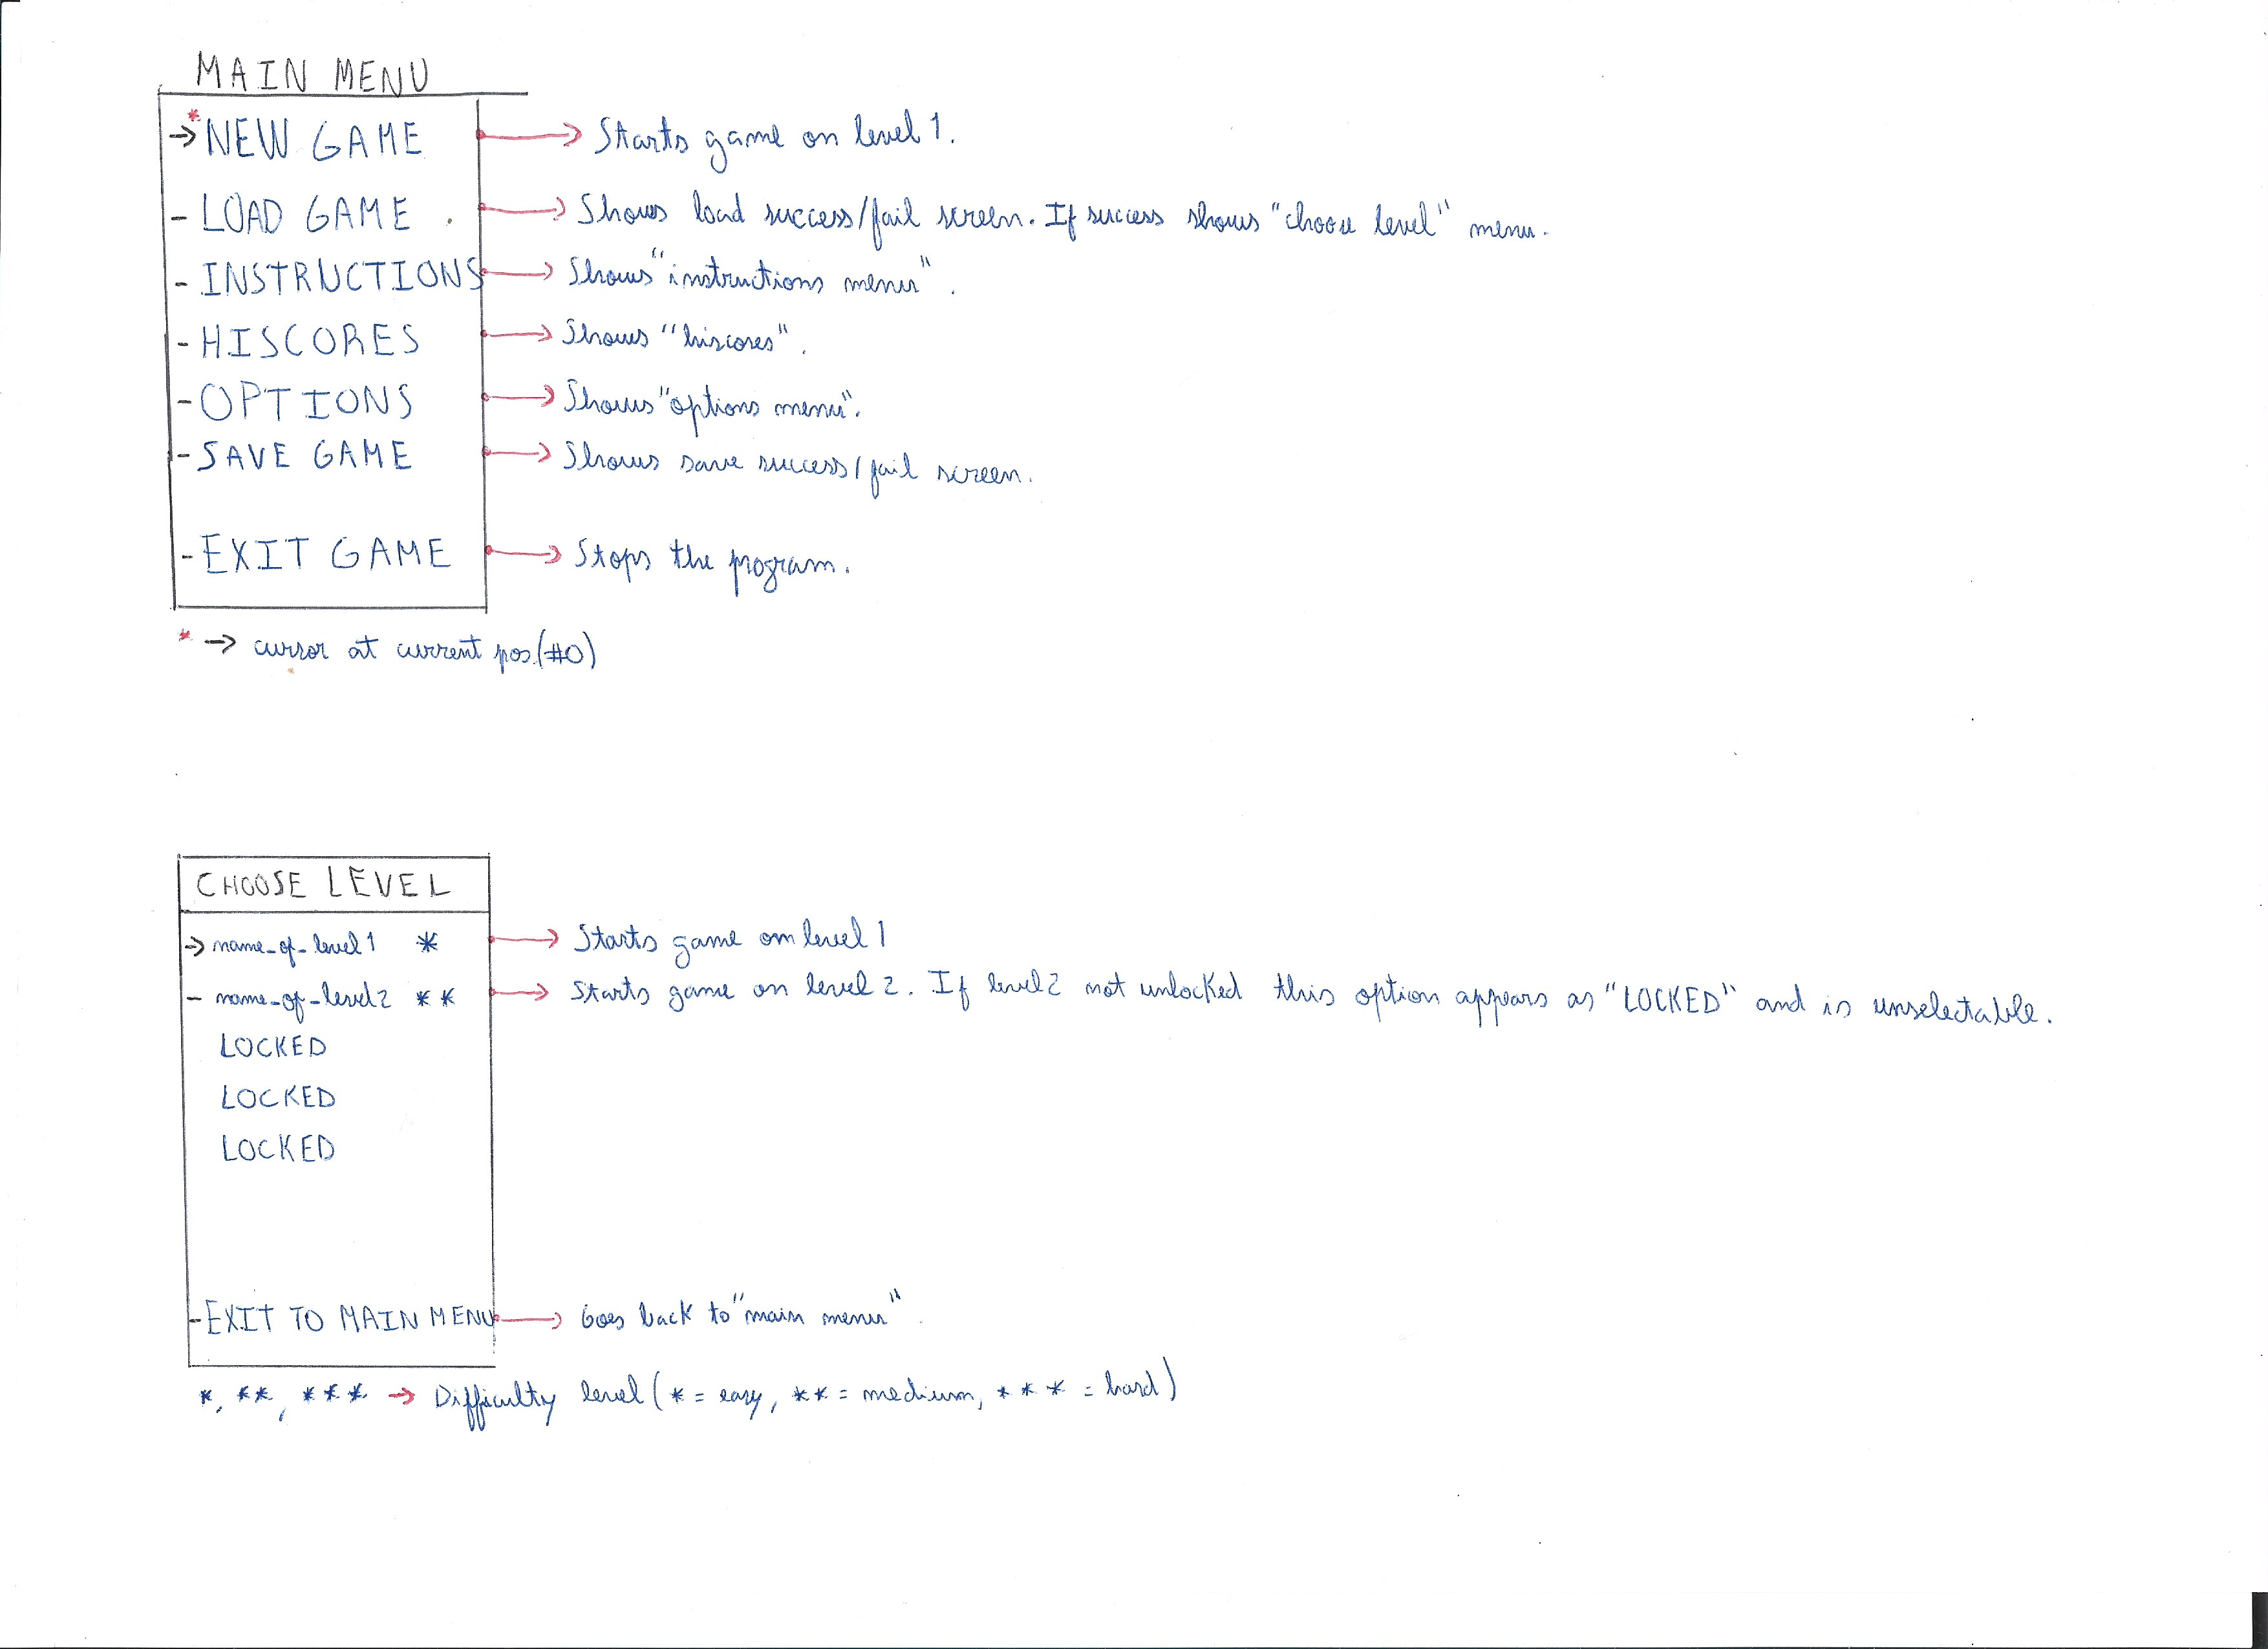 MAIN MENU
* → NEW GAME → Starts game on level 1.
- LOAD GAME . → Shows load success/fail screen. If success shows "choose level" menu.
- INSTRUCTIONS → Shows "instructions menu".
- HISCORES → Shows "hiscores".
- OPTIONS → Shows "options menu".
- SAVE GAME → Shows save success/fail screen.
- EXIT GAME → Stops the program.
* → cursor at current pos.(#0)
CHOOSE LEVEL
→ name_of_level1 * → Starts game on level 1
- name_of_level2 ** → Starts game on level 2. If level2 not unlocked this option appears as "LOCKED" and is unselectable.
LOCKED
LOCKED
LOCKED
- EXIT TO MAIN MENU → Goes back to "main menu".
*, **, *** → Difficulty level (* = easy, ** = medium, *** = hard)